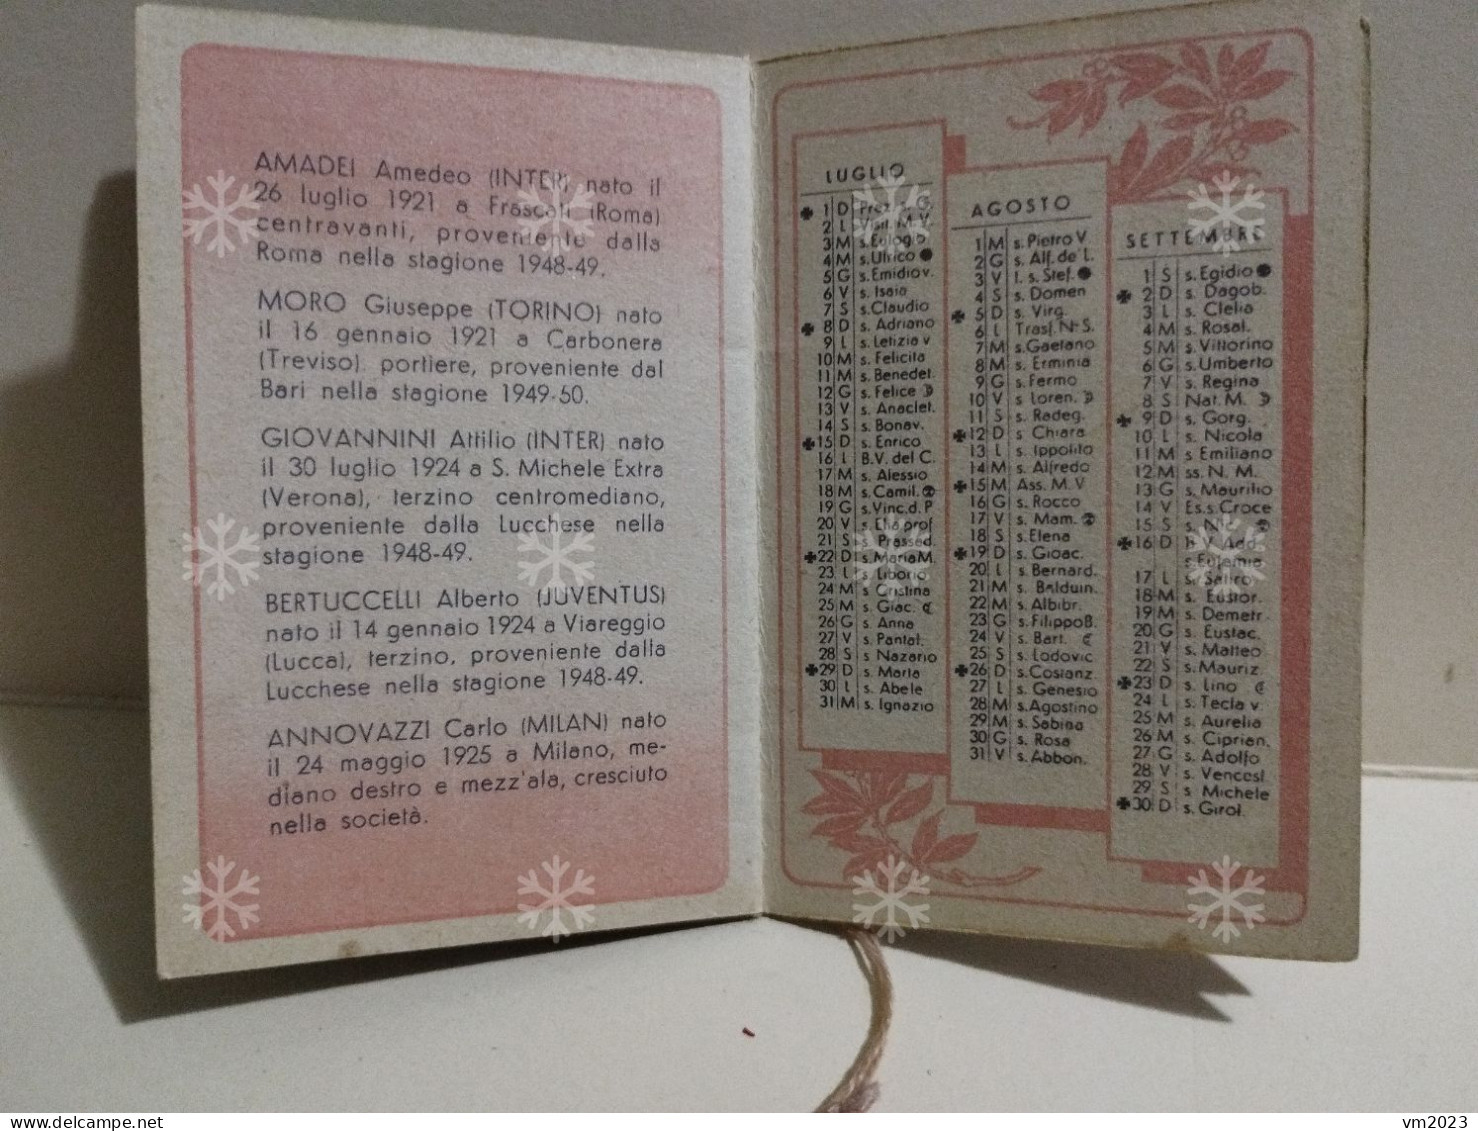 AMADEI Amedeo (INTER) nato il
26 luglio 1921 a Frascati (Roma)
centravanti, proveniente dalla
Roma nella stagione 1948-49.
MORO Giuseppe (TORINO) nato
il 16 gennaio 1921 a Carbonera
(Treviso) portiere, proveniente dal
Bari nella stagione 1949-50.
GIOVANNINI Attilio (INTER) nato
il 30 luglio 1924 a S. Michele Extra
(Verona), terzino centromediano,
proveniente dalla Lucchese nella
stagione 1948-49.
BERTUCCELLI Alberto (JUVENTUS)
nato il 14 gennaio 1924 a Viareggio
(Lucca), terzino, proveniente dalla
Lucchese nella stagione 1948-49.
ANNOVAZZI Carlo (MILAN) nato
il 24 maggio 1925 a Milano, me-
diano destro e mezz'ala, cresciuto
nella società.
LUGLIO
1 D Prez. s. G.
2 L Visit. M. V.
3 M s. Eulogio
4 M s. Ulrico
5 G s. Emidio v.
6 V s. Isaia
7 S s. Claudio
8 D s. Adriano
9 L s. Letizia v
10 M s. Felicita
11 M s. Benedet.
12 G s. Felice
13 V s. Anaclet.
14 S s. Bonav.
15 D s. Enrico
16 L B.V. del C.
17 M s. Alessio
18 M s. Camil.
19 G s. Vinc. d. P
20 V s. Elia prof
21 S s. Prassed.
22 D s. Maria M.
23 L s. Liborio
24 M s. Cristina
25 M s. Giac.
26 G s. Anna
27 V s. Pantal.
28 S s Nazario
29 D s. Marta
30 L s. Abele
31 M s. Ignazio
AGOSTO
1 M s. Pietro V
2 G s. Alf. de' L.
3 V I. s. Stef.
4 S s. Domen
5 D s. Virg.
6 L Trasf. N-S.
7 M s. Gaetano
8 M s. Erminia
9 G s. Fermo
10 V s Loren.
11 S s. Radeg.
12 D s Chiara
13 L s. Ippolito
14 M s. Alfredo
15 M Ass. M. V
16 G s. Rocco
17 V s. Mam.
18 S s. Elena
19 D s. Gioac.
20 L s. Bernard.
21 M s. Balduin.
22 M s. Albibr.
23 G s. Filippo B.
24 V s. Bart.
25 S s. Lodovic
26 D s. Costanz.
27 L s. Genesio
28 M s. Agostino
29 M s. Sabina
30 G s. Rosa
31 V s. Abbon.
SETTEMBRE
1 S s. Egidio
2 D s. Dagob.
3 L s. Clelia
4 M s. Rosal.
5 M s. Vittorino
6 G s. Umberto
7 V s. Regina
8 S Nat. M.
9 D s. Gorg.
10 L s. Nicola
11 M s. Emiliano
12 M ss. N. M.
13 G s. Maurilio
14 V Es. s. Croce
15 S s. Nic.
16 D b. V. Add.
s. Eufemia
17 L s. Satiro
18 M s. Eustor.
19 M s. Demetr.
20 G s. Eustac.
21 V s. Matteo
22 S s. Mauriz.
23 D s. Lino
24 L s. Tecla v.
25 M s. Aurelia
26 M s. Ciprian.
27 G s. Adolfo
28 V s. Vencesl
29 S s Michele
30 D s. Girol.
vm2023